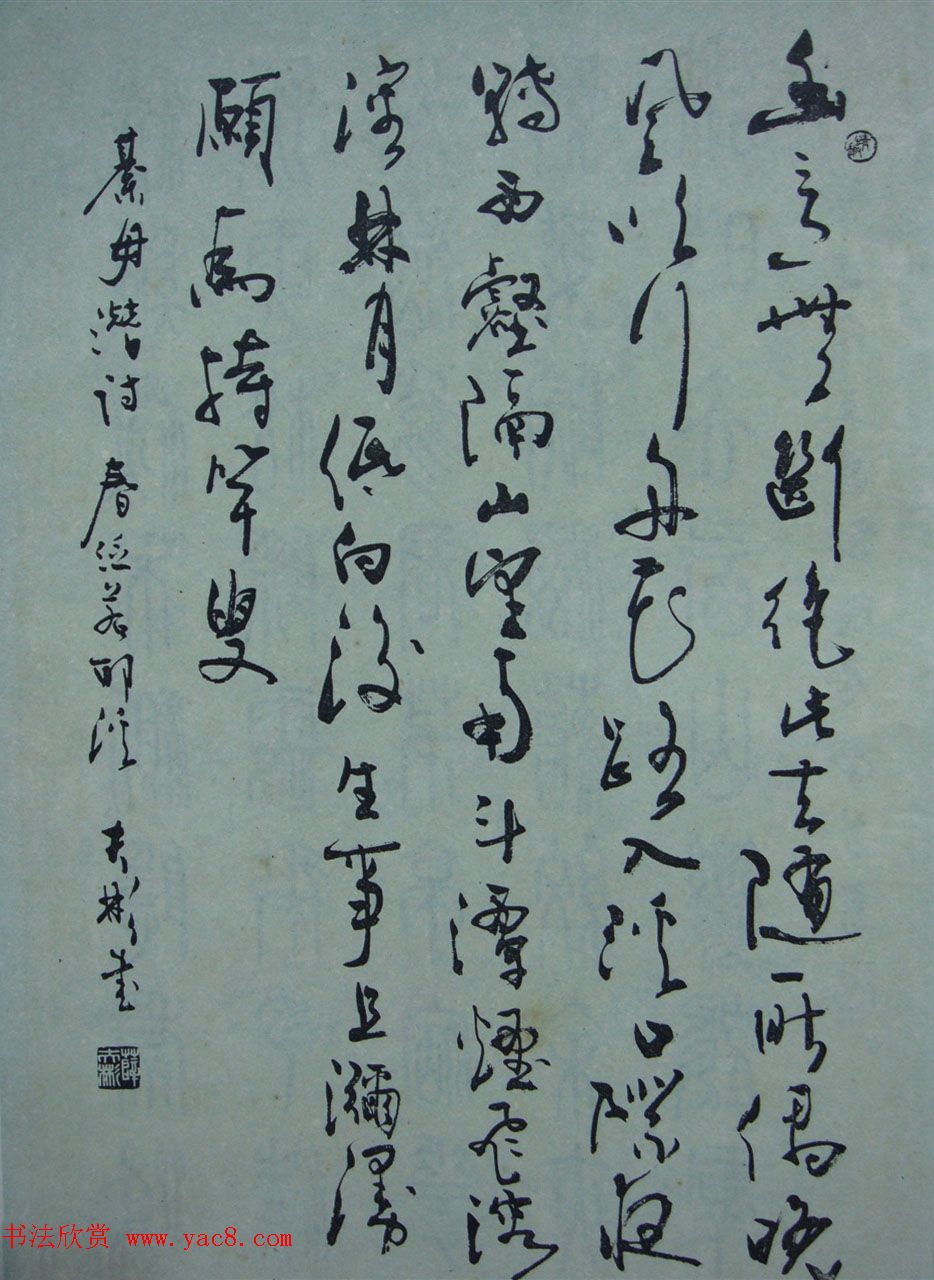 幽意無斷絕此去隨所偶晚
風吹行舟花路入溪口際夜
轉西壑隔山望南斗潭煙飛溶
溶林月低向後生事且瀰漫
願為持竿叟
綦毋潛詩 春泛若耶溪 夫彬書
薛夫彬
书法欣赏 www.yac8.com